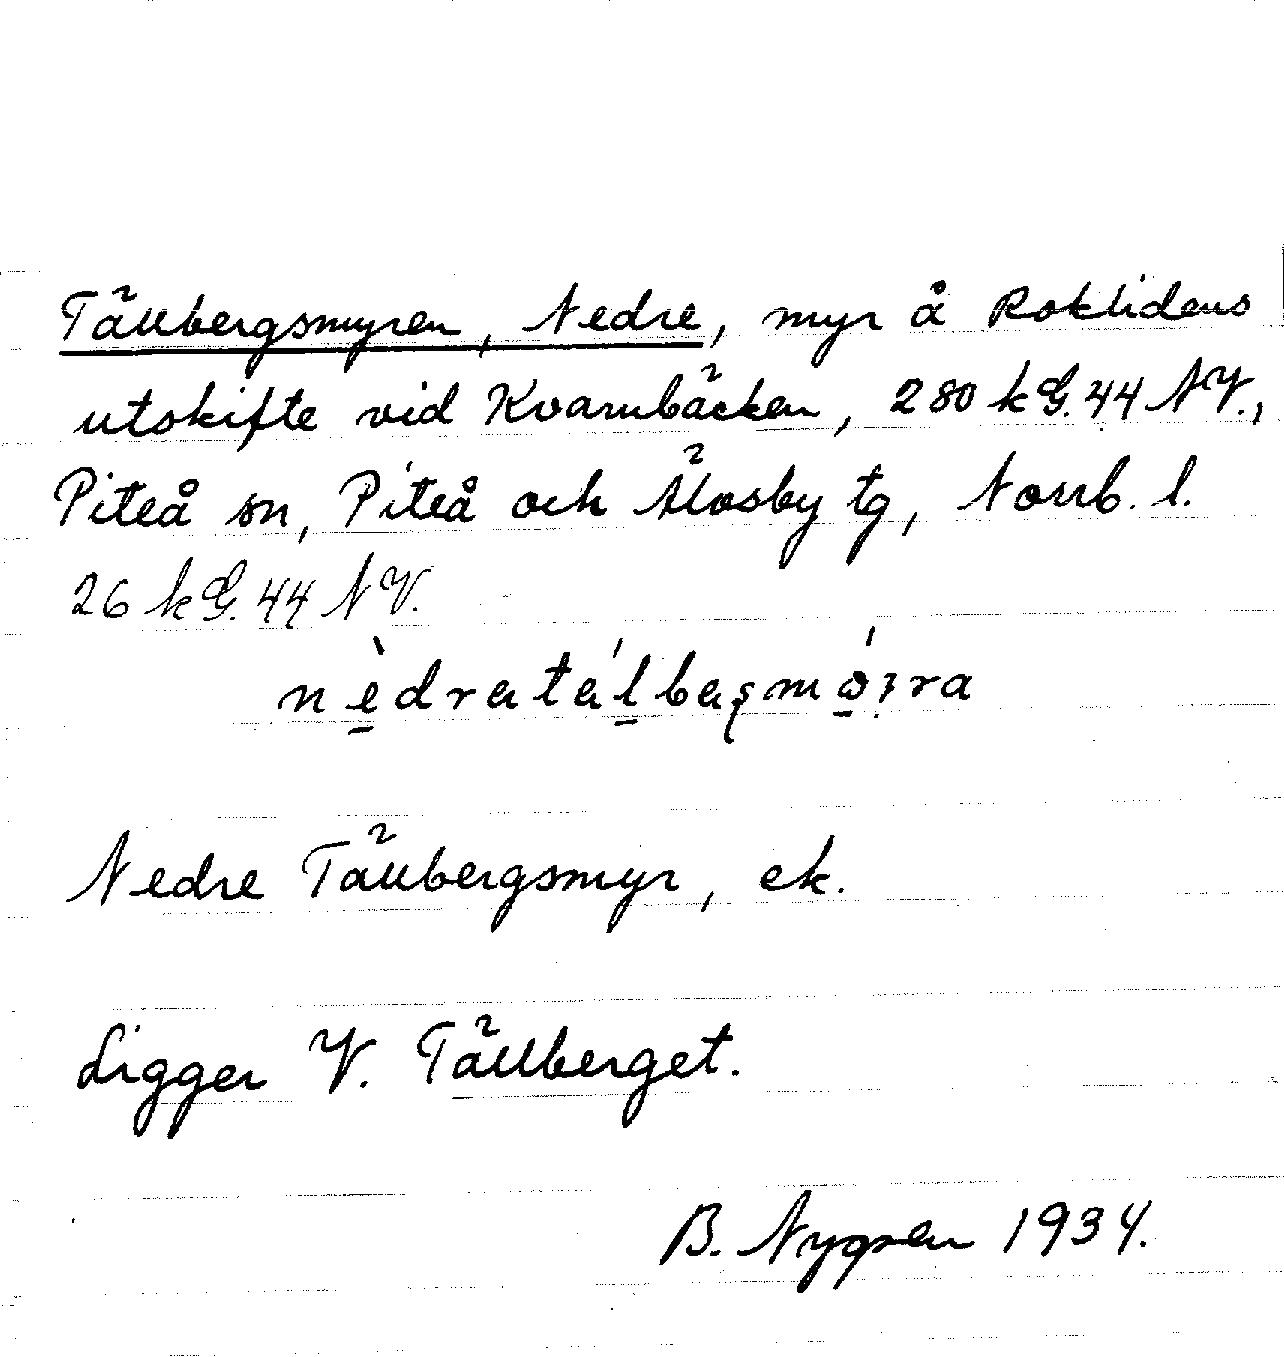 Tällbergsmyren, Nedre, myr å Roklidens
utskifte vid Kvarnbäcken, 280 kG. 44 NV.,
Piteå sn, Piteå och Älvsby tg, Norrb. l.
26 kG. 44 NV.
Nedre Tällbergsmyr, ek.
Ligger V. Tällberget.
B. Nygren 1934.